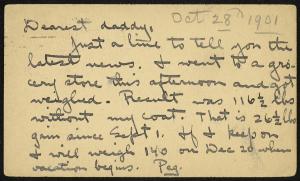 Oct 28th 1901
Dearest daddy,
Just a line to tell you the
latest news. I went to a gro-
cery store this afternoon and got
weighed. Result was 116½ lbs
without my coat. That is 26½ lbs
gain since Sept 1. If I keep on
I will weigh 140 on Dec 20 when
vacation begins. Peg-